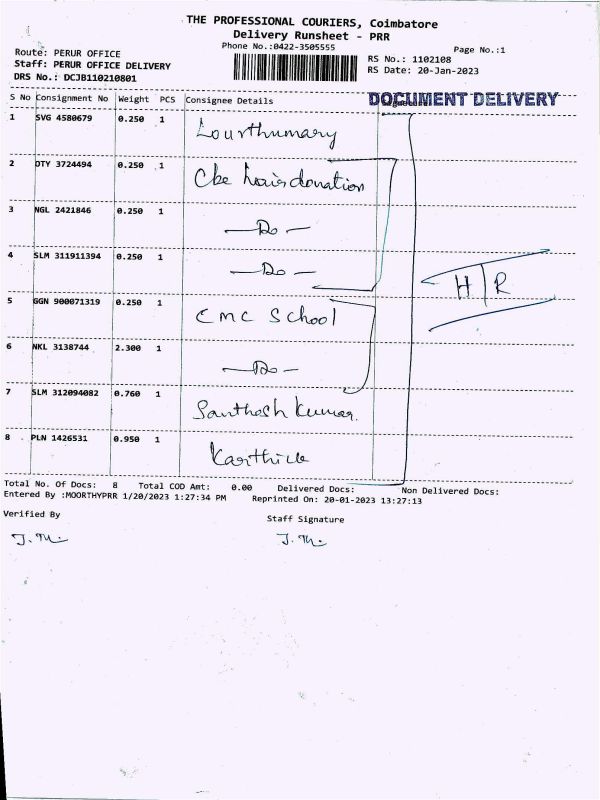 THE PROFESSIONAL COURIERS, Coimbatore
Delivery Runsheet - PRR
Phone No.:0422-3505555
Page No.:1
Route: PERUR OFFICE
Staff: PERUR OFFICE DELIVERY
DRS No.: DCJB110210801
RS No.: 1102108
RS Date: 20-Jan-2023
S No Consignment No Weight PCS Consignee Details
DOCUMENT DELIVERY
1 SVG 4580679 0.250 1 Lourthumary
2 DTY 3724494 0.250 1 Cbe hair donation
3 NGL 2421846 0.250 1 —Do—
4 SLM 311911394 0.250 1 —Do—
H/R
5 GGN 900071319 0.250 1 CMC School
6 NKL 3138744 2.300 1 —Do—
7 SLM 312094082 0.760 1 Santhosh Kumar.
8 PLN 1426531 0.950 1 Karthick
Total No. Of Docs: 8 Total COD Amt: 0.00 Delivered Docs: Non Delivered Docs:
Entered By :MOORTHYPRR 1/20/2023 1:27:34 PM Reprinted On: 20-01-2023 13:27:13
Verified By
Staff Signature